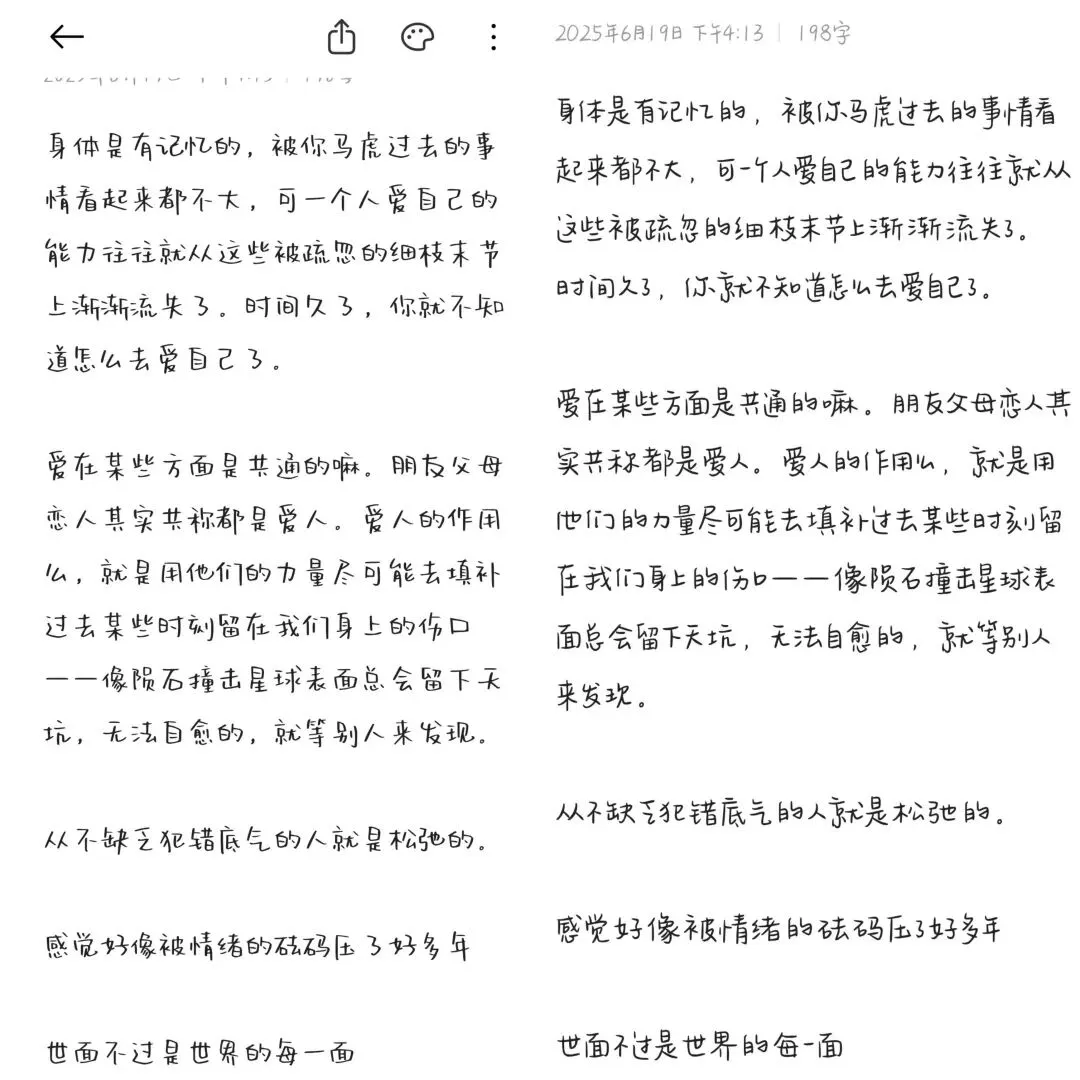 身体是有记忆的，被你马虎过去的事
情看起来都不大，可一个人爱自己的
能力往往就从这些被疏忽的细枝末节
上渐渐流失了。时间久了，你就不知
道怎么去爱自己了。
爱在某些方面是共通的嘛。朋友父母
恋人其实共称都是爱人。爱人的作用
么，就是用他们的力量尽可能去填补
过去某些时刻留在我们身上的伤口
——像陨石撞击星球表面总会留下天
坑，无法自愈的，就等别人来发现。
从不缺乏犯错底气的人就是松弛的。
感觉好像被情绪的砝码压了好多年
世面不过是世界的每一面
2025年6月19日 下午4:13 | 198字
身体是有记忆的，被你马虎过去的事情看
起来都不大，可一个人爱自己的能力往往就从
这些被疏忽的细枝末节上渐渐流失了。
时间久了，你就不知道怎么去爱自己了。
爱在某些方面是共通的嘛。朋友父母恋人其
实共称都是爱人。爱人的作用么，就是用
他们的力量尽可能去填补过去某些时刻留
在我们身上的伤口——像陨石撞击星球表
面总会留下天坑，无法自愈的，就等别人
来发现。
从不缺乏犯错底气的人就是松弛的。
感觉好像被情绪的砝码压了好多年
世面不过是世界的每一面